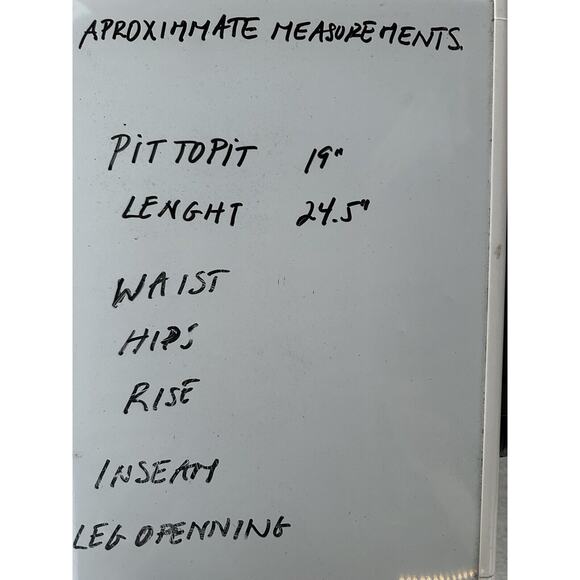 APROXIMMATE MEASUREMENTS.
PIT TO PIT 19"
LENGHT 24.5"
WAIST
HIPS
RISE
INSEAM
LEG OPENNING